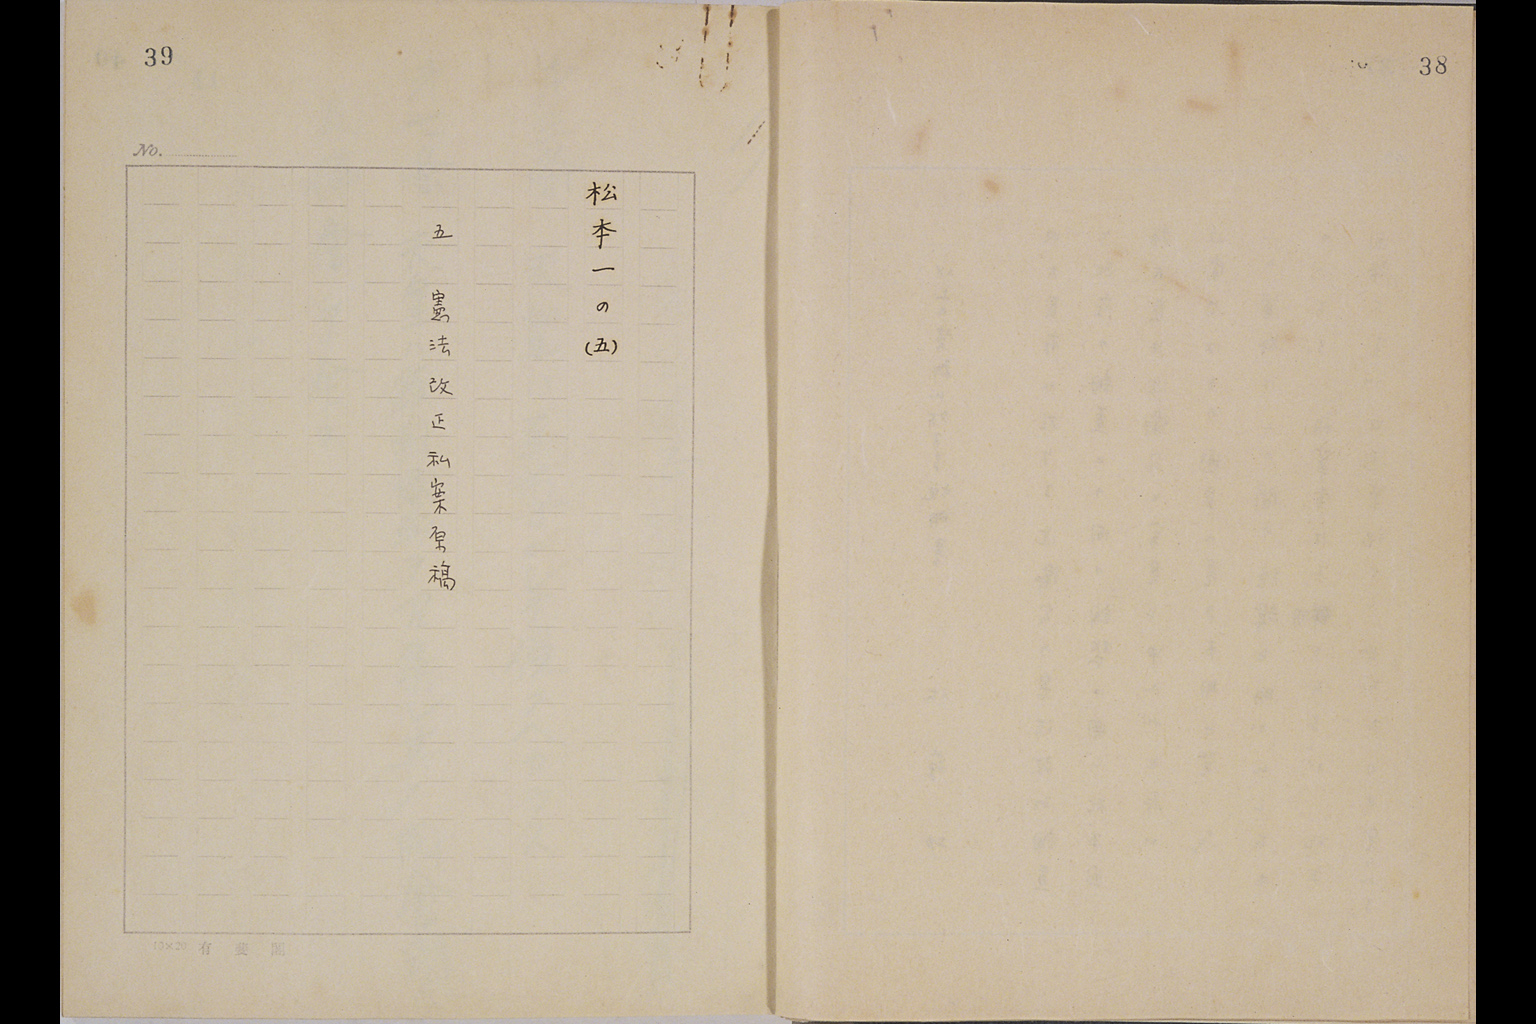 38
39
No.
松本一の(五)
五 憲法改正私案原稿
15×20 有斐閣